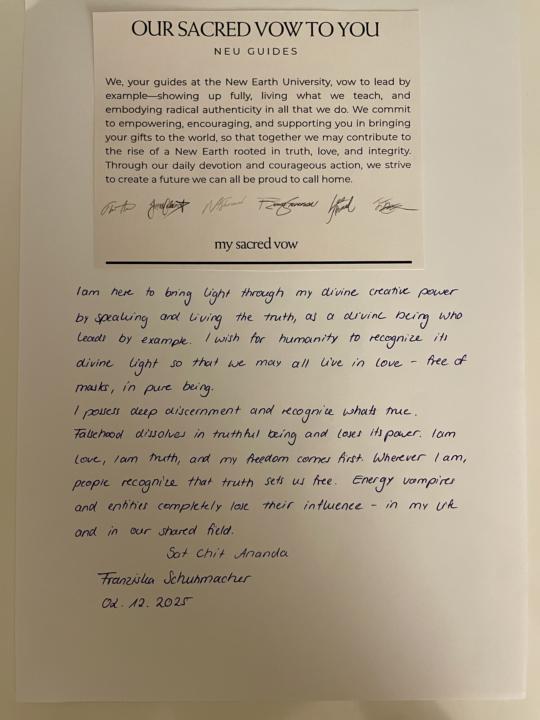 OUR SACRED VOW TO YOU
NEU GUIDES
We, your guides at the New Earth University, vow to lead by
example—showing up fully, living what we teach, and
embodying radical authenticity in all that we do. We commit
to empowering, encouraging, and supporting you in bringing
your gifts to the world, so that together we may contribute to
the rise of a New Earth rooted in truth, love, and integrity.
Through our daily devotion and courageous action, we strive
to create a future we can all be proud to call home.
my sacred vow
I am here to bring light through my divine creative power
by speaking and living the truth, as a divine being who
leads by example. I wish for humanity to recognize its
divine light so that we may all live in love - free of
masks, in pure being.
I possess deep discernment and recognize whats true.
Falsehood dissolves in truthful being and loses its power. I am
love, I am truth, and my freedom comes first. Wherever I am,
people recognize that truth sets us free. Energy vampires
and entities completely lose their influence - in my life
and in our shared field.
Sat Chit Ananda
Franziska Schuhmacher
02.12.2025